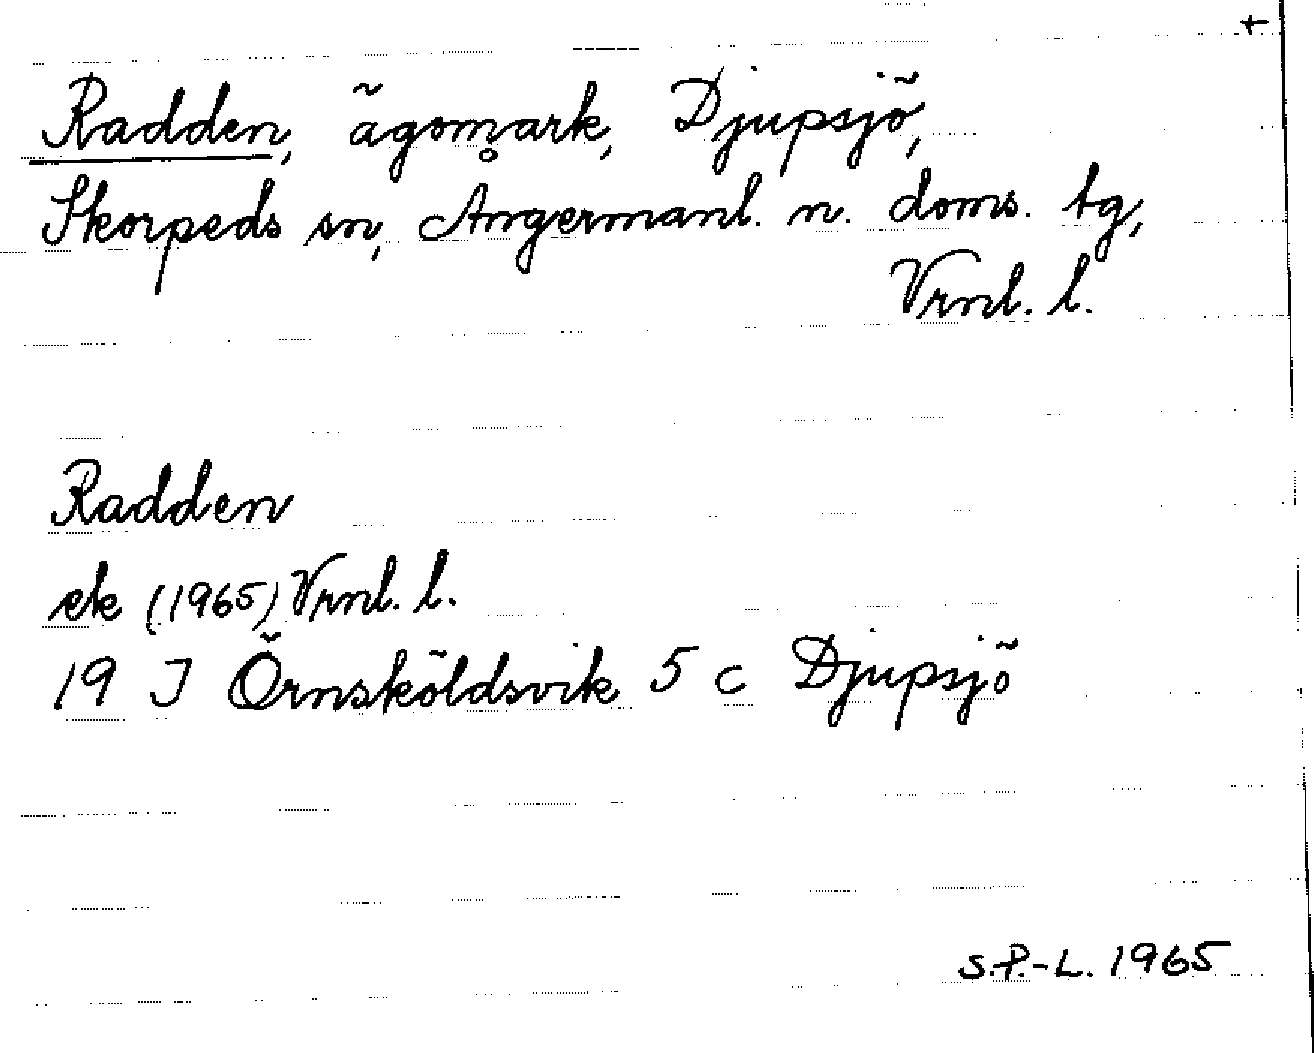 +
Radden, ägomark, Djupsjö,
Skorpeds sn, Ångermanl. n. doms. tg,
Vrnl. l.
Radden
ek (1965) Vrnl. l.
19 J Örnsköldsvik 5 c Djupsjö
S.P.-L. 1965